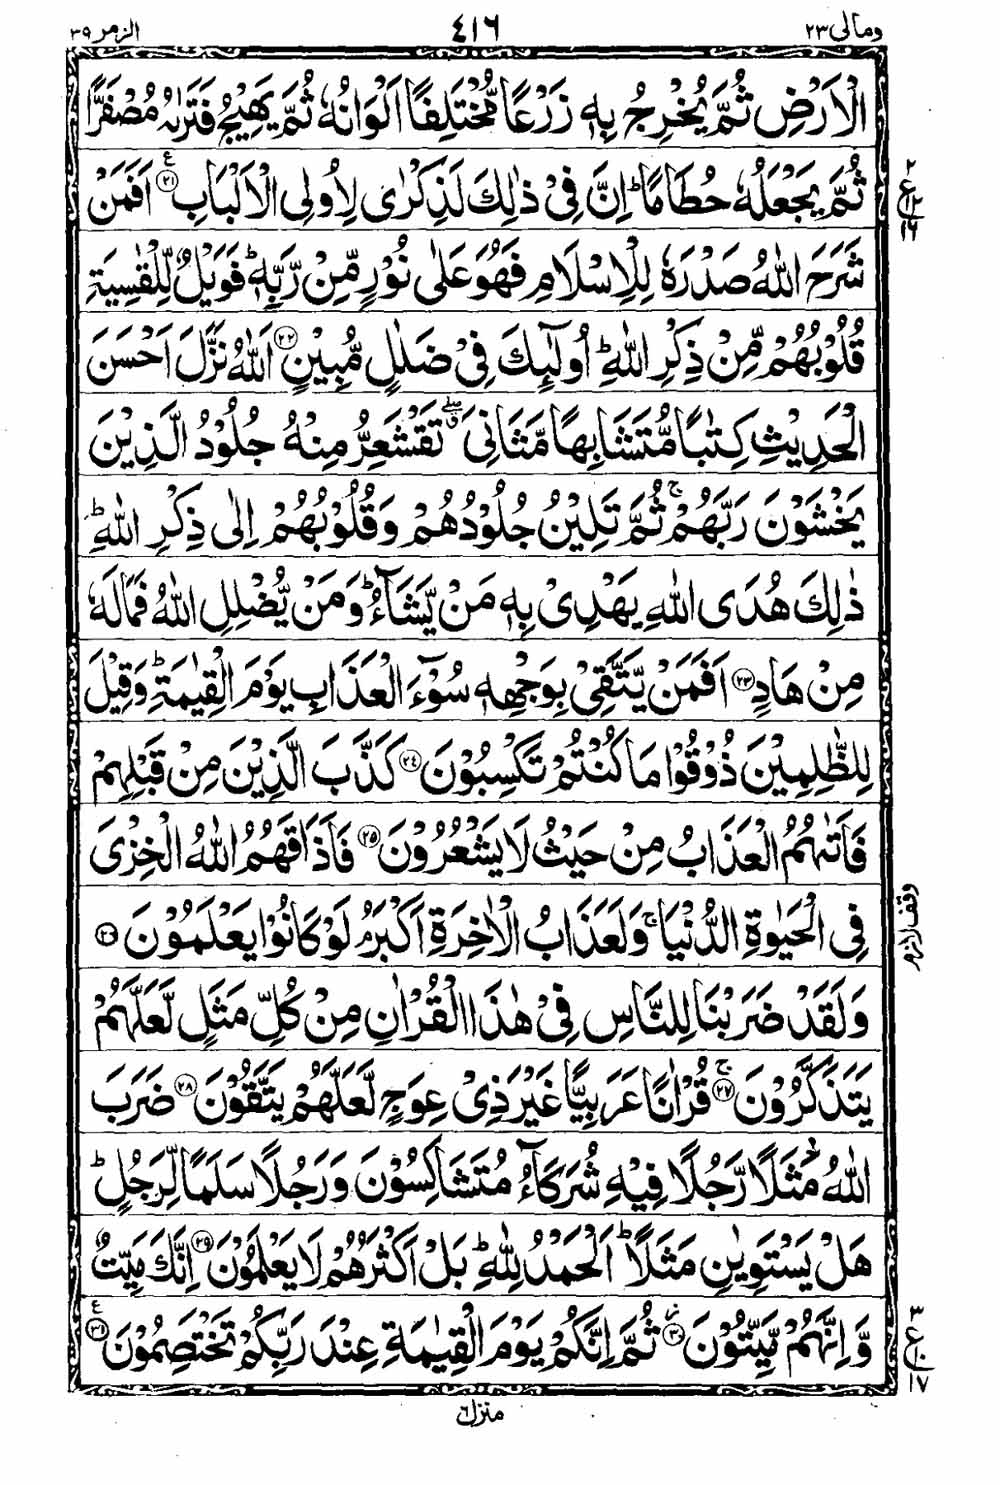 الزمر ٣٩ ٤١٦ ومالی ٢٣
الْاَرْضِ ثُمَّ يُخْرِجُ بِهٖ زَرْعًا مُّخْتَلِفًا اَلْوَانُهٗ ثُمَّ يَهِيْجُ فَتَرٰىهُ مُصْفَرًّا
ثُمَّ يَجْعَلُهٗ حُطَامًا ؕ اِنَّ فِيْ ذٰلِكَ لَذِكْرٰى لِاُولِى الْاَلْبَابِ ﴿٢١﴾ ع اَفَمَنْ
شَرَحَ اللّٰهُ صَدْرَهٗ لِلْاِسْلَامِ فَهُوَ عَلٰى نُوْرٍ مِّنْ رَّبِّهٖ ؕ فَوَيْلٌ لِّلْقٰسِيَةِ
قُلُوْبُهُمْ مِّنْ ذِكْرِ اللّٰهِ ؕ اُولٰٓئِكَ فِيْ ضَلٰلٍ مُّبِيْنٍ ﴿٢٢﴾ اَللّٰهُ نَزَّلَ اَحْسَنَ
الْحَدِيْثِ كِتٰبًا مُّتَشَابِهًا مَّثَانِيَ ۖق تَقْشَعِرُّ مِنْهُ جُلُوْدُ الَّذِيْنَ
يَخْشَوْنَ رَبَّهُمْ ۚ ثُمَّ تَلِيْنُ جُلُوْدُهُمْ وَقُلُوْبُهُمْ اِلٰى ذِكْرِ اللّٰهِ ؕ
ذٰلِكَ هُدَى اللّٰهِ يَهْدِيْ بِهٖ مَنْ يَّشَآءُ ؕ وَمَنْ يُّضْلِلِ اللّٰهُ فَمَا لَهٗ
مِنْ هَادٍ ﴿٢٣﴾ اَفَمَنْ يَّتَّقِيْ بِوَجْهِهٖ سُوْٓءَ الْعَذَابِ يَوْمَ الْقِيٰمَةِ ؕ وَقِيْلَ
لِلظّٰلِمِيْنَ ذُوْقُوْا مَا كُنْتُمْ تَكْسِبُوْنَ ﴿٢٤﴾ كَذَّبَ الَّذِيْنَ مِنْ قَبْلِهِمْ
فَاَتٰىهُمُ الْعَذَابُ مِنْ حَيْثُ لَا يَشْعُرُوْنَ ﴿٢٥﴾ فَاَذَاقَهُمُ اللّٰهُ الْخِزْيَ
فِى الْحَيٰوةِ الدُّنْيَا ۚ وَلَعَذَابُ الْاٰخِرَةِ اَكْبَرُ ۘ لَوْ كَانُوْا يَعْلَمُوْنَ ﴿٢٦﴾
وَلَقَدْ ضَرَبْنَا لِلنَّاسِ فِيْ هٰذَا الْقُرْاٰنِ مِنْ كُلِّ مَثَلٍ لَّعَلَّهُمْ
يَتَذَكَّرُوْنَ ﴿٢٧﴾ ۚ قُرْاٰنًا عَرَبِيًّا غَيْرَ ذِيْ عِوَجٍ لَّعَلَّهُمْ يَتَّقُوْنَ ﴿٢٨﴾ ضَرَبَ
اللّٰهُ مَثَلًا رَّجُلًا فِيْهِ شُرَكَآءُ مُتَشَاكِسُوْنَ وَرَجُلًا سَلَمًا لِّرَجُلٍ ؕ
هَلْ يَسْتَوِيٰنِ مَثَلًا ؕ اَلْحَمْدُ لِلّٰهِ ؕ بَلْ اَكْثَرُهُمْ لَا يَعْلَمُوْنَ ﴿٢٩﴾ اِنَّكَ مَيِّتٌ
وَّاِنَّهُمْ مَّيِّتُوْنَ ﴿٣٠﴾ ز ثُمَّ اِنَّكُمْ يَوْمَ الْقِيٰمَةِ عِنْدَ رَبِّكُمْ تَخْتَصِمُوْنَ ﴿٣١﴾ ع
٢
ع
١٢
١٦
وقف لازم
٣
ع
١٠
١٧
منزل ٦